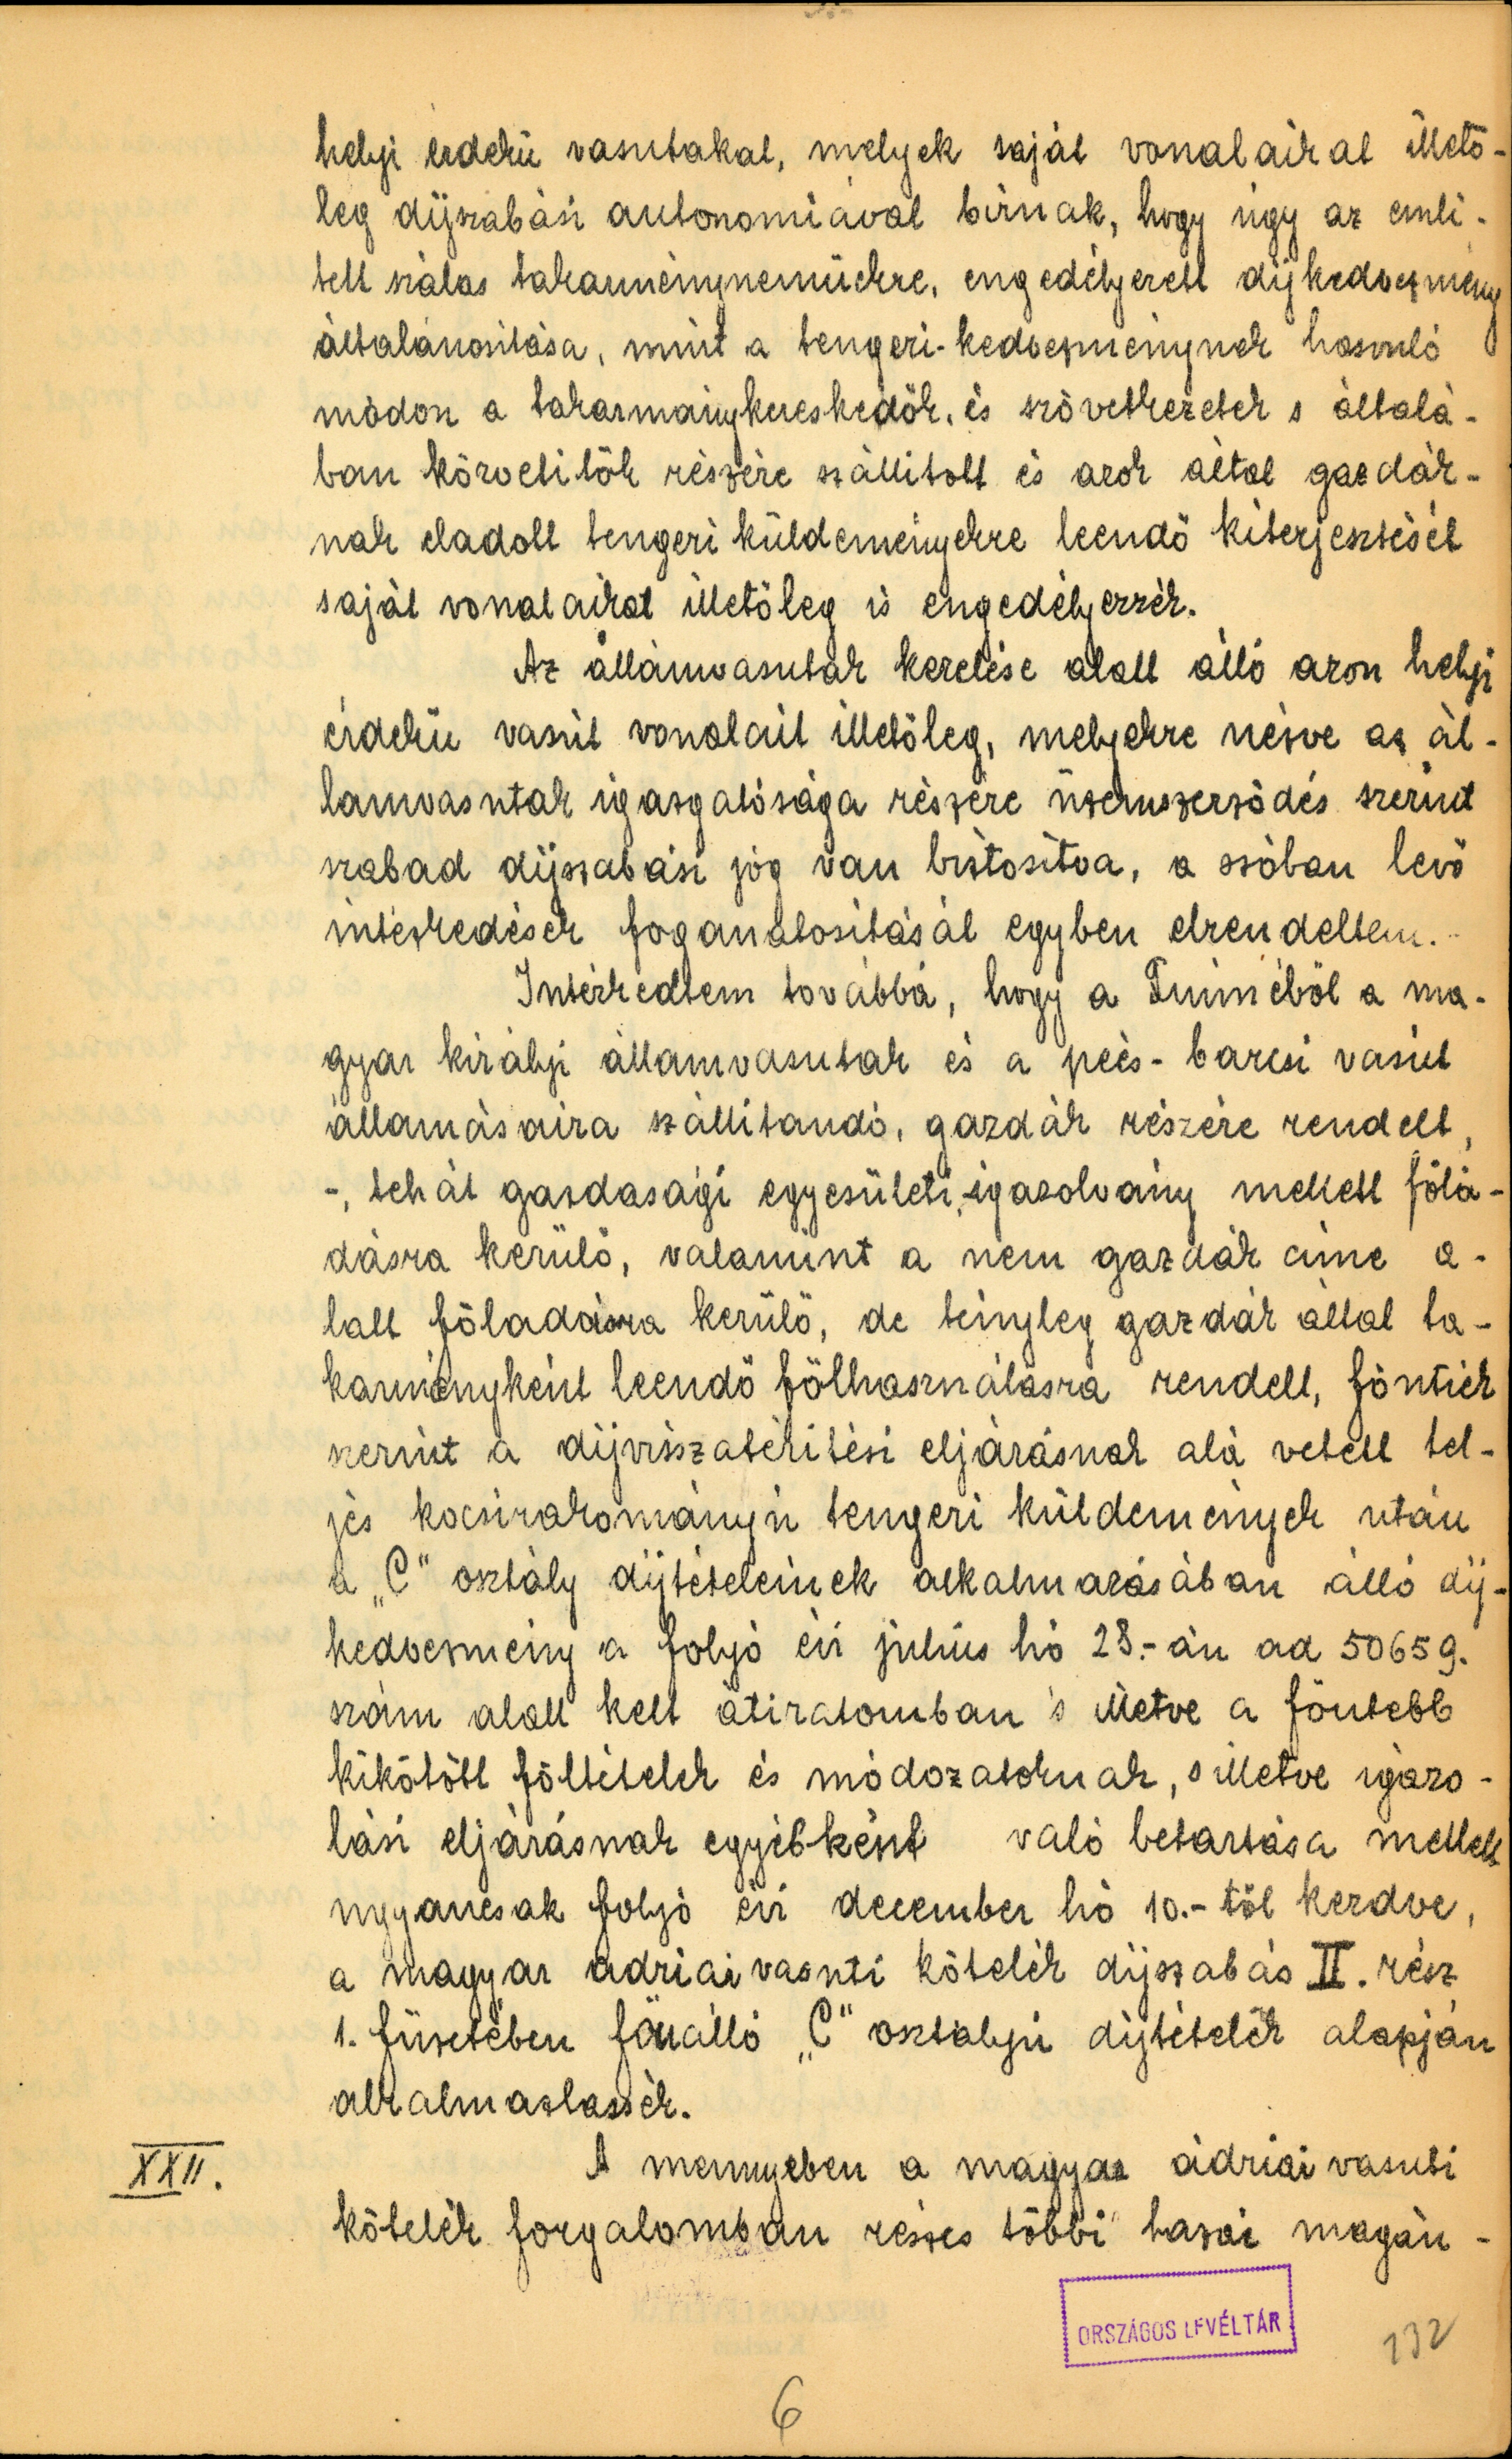 helyi érdekü vasutakat, melyek saját vonalaikat illető-
leg díjszabási autonomiával birnak, hogy úgy az emli-
tett szálas takarmánynemüekre, engedélyezett díjkedvezmény
általánositása, mint a tengeri-kedvezménynek hasonló
módon a takarmánykereskedök, és szövetkezetek s általá-
ban közvetitők részére szállitott és azok által gazdák-
nak eladott tengeri küldeményekre leendő kiterjesztését
saját vonalaikat illetőleg is engedélyezzék.
Az államvasutak kezelése alatt álló azon helyi
érdekü vasút vonalait illetőleg, melyekre nézve az ál-
lamvasutak igazgatósága részére üzemszerződés szerint
szabad díjszabási jog van biztosítva, a szóban levő
intézkedések foganatositását egyben elrendeltem.-
Intézkedtem továbbá, hogy a Fiuméből a ma-
gyar királyi államvasutak és a pécs-barcsi vasút
államásaira szállitandó, gazdák részére rendelt,
-, tehát gazdasági egyesületi, igazolvány mellett föla-
dásra kerülő, valamint a nem gazdák cime a-
latt föladásra kerülő, de tényleg gazdák által ta-
karmányként leendő fölhasználásra rendelt, föntiek
szerint a díjvisszatéritési eljárásnak alá vetett tel-
jes kocsirakományú tengeri küldemények után
a „C" osztály díjtételeinek alkalmazásában álló díj-
kedvezmény a folyó évi július hó 28.-án ad 50659.
szám alatt kelt átiratomban s illetve a föntebb
kikötött föltételek és módozatoknak, s illetve igazo-
lási eljárásnak egyébként való betartása mellett
ugyancsak folyó évi december hó 10.-től kezdve,
a magyar adriai vasuti kötelék díjszabás II. rész
1. füzetében fönálló „C" osztályú díjtételek alapján
alkalmaztassék.
XXII.
A mennyeben a magyar ádriai vasuti
kötelék forgalomban részes többi hazai magán-
ORSZÁGOS LEVÉLTÁR
132
6